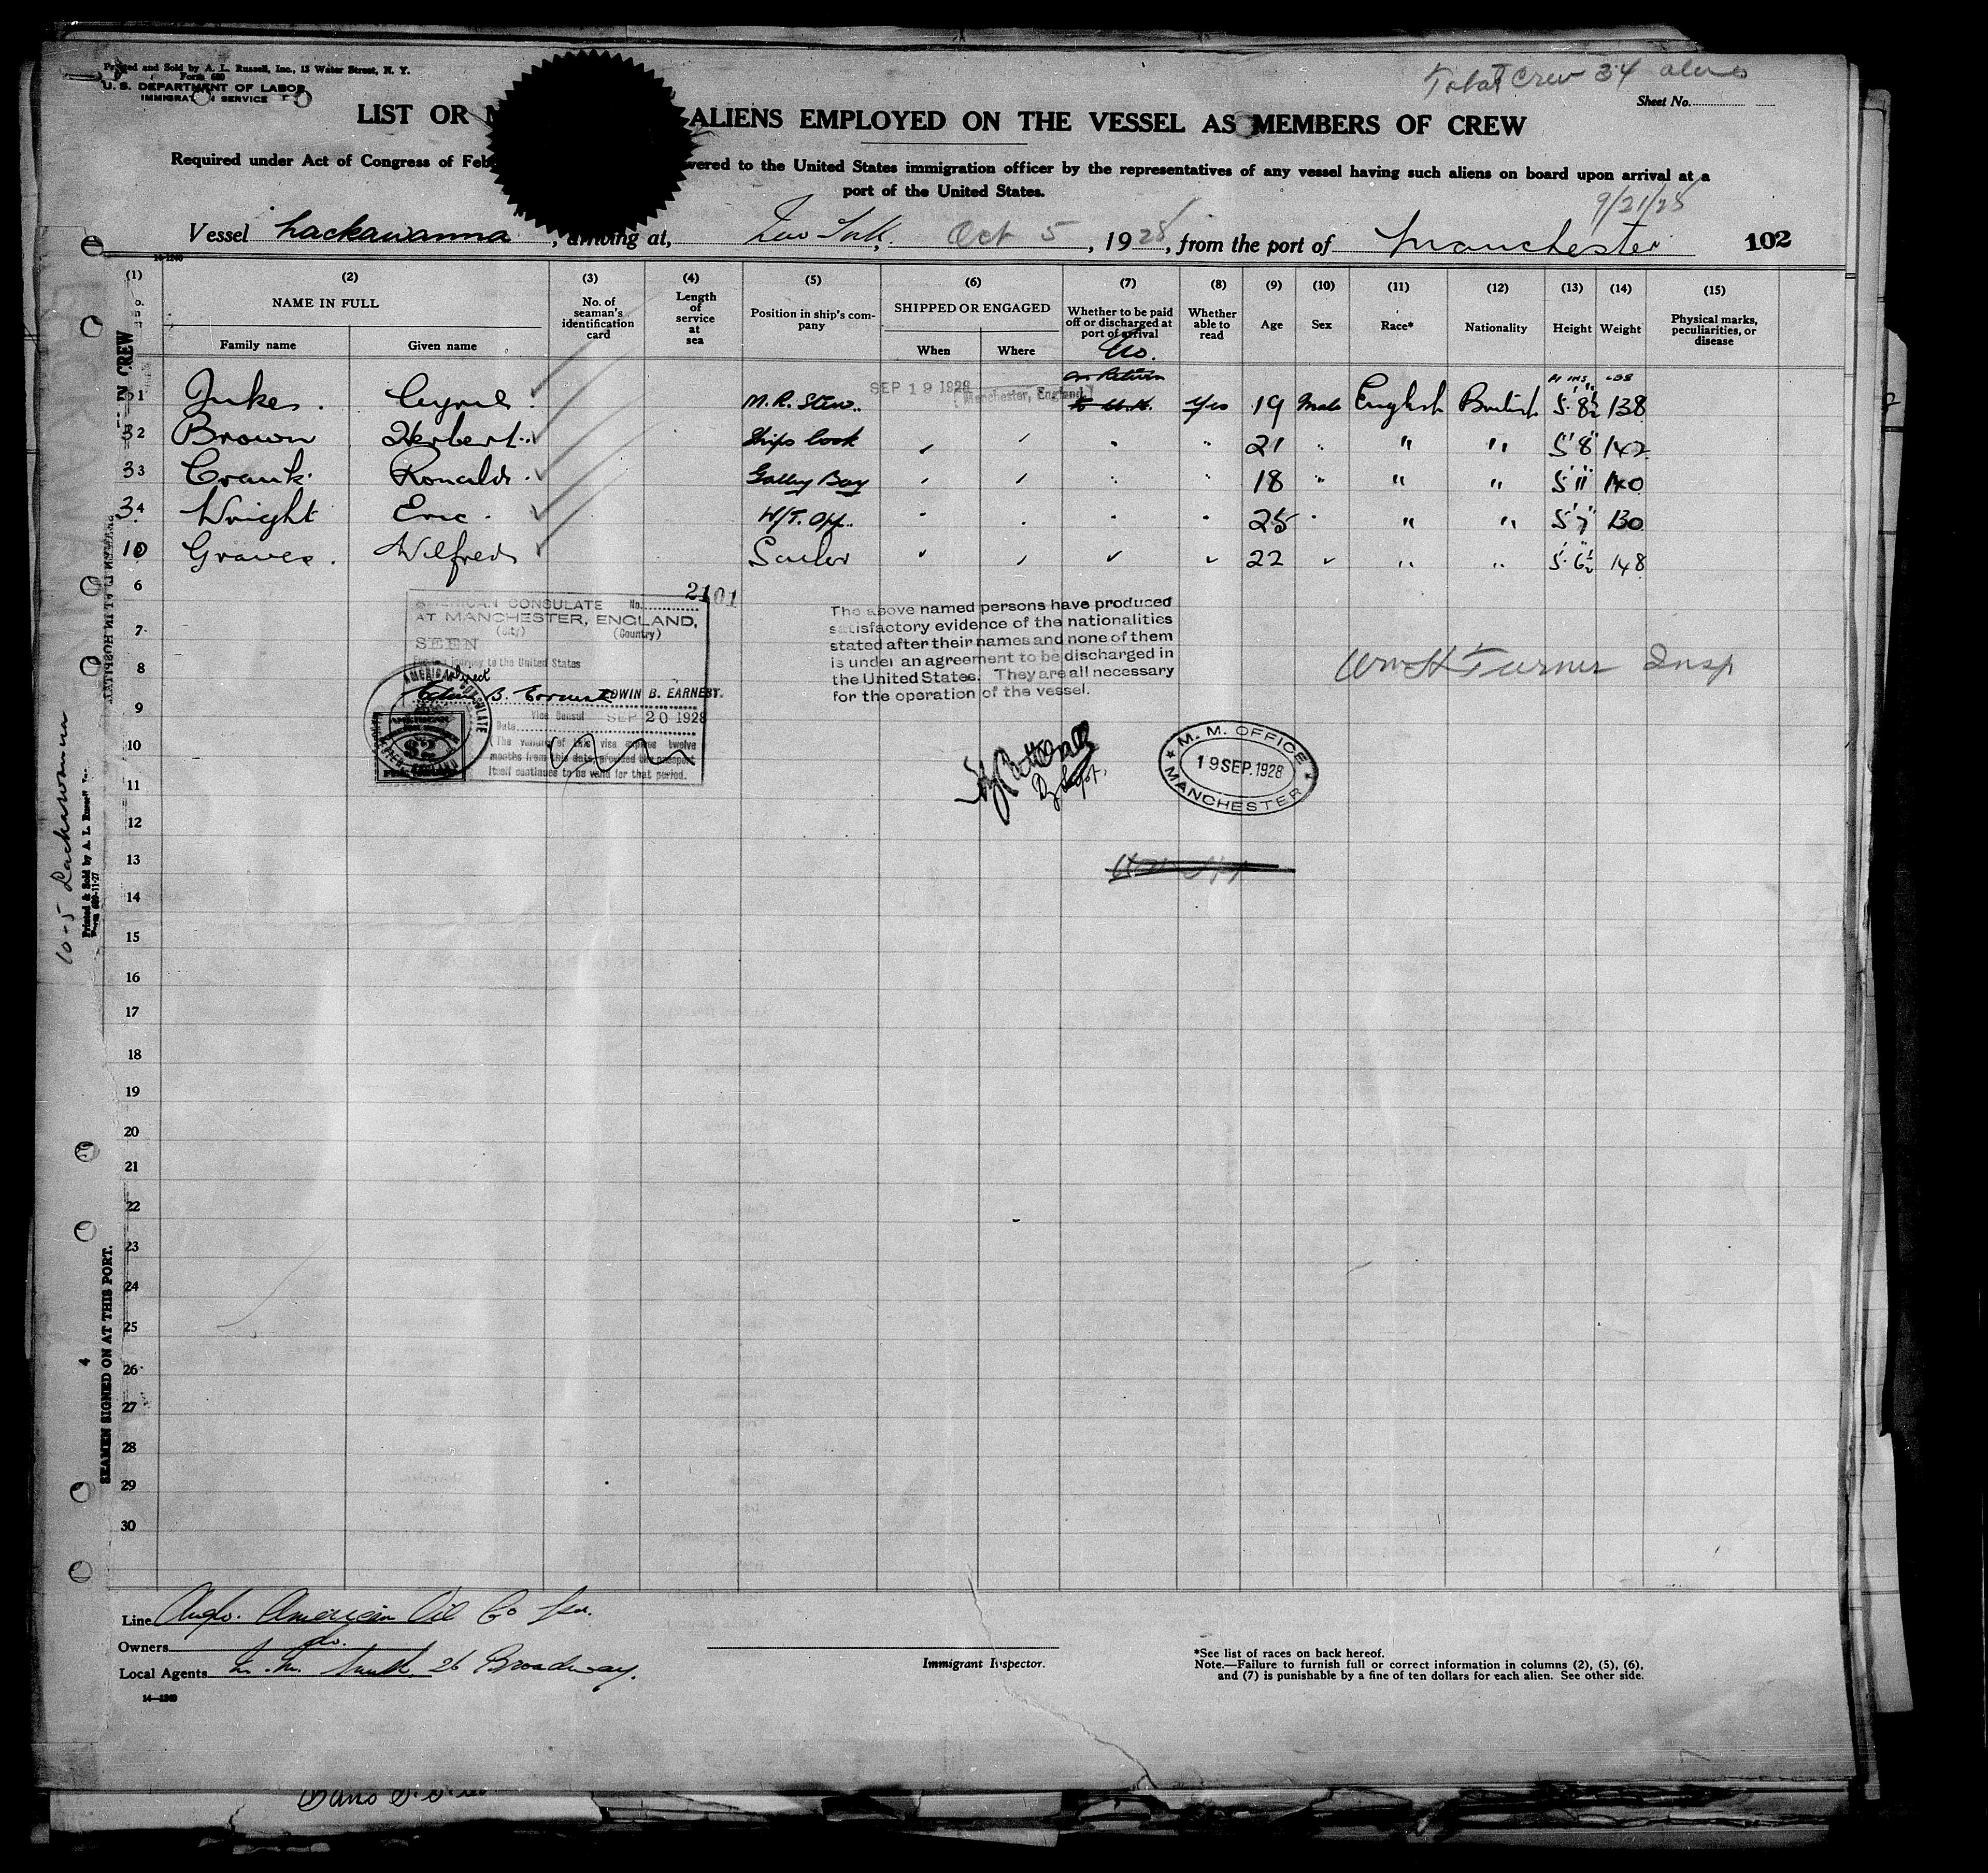 Printed and Sold by A. L. Russell, Inc., 13 Water Street, N. Y.
Form 680
U. S. DEPARTMENT OF LABOR
IMMIGRATION SERVICE
Total Crew 34 aliens
Sheet No.
LIST OR ALIENS EMPLOYED ON THE VESSEL AS MEMBERS OF CREW
Required under Act of Congress of Feb vered to the United States immigration officer by the representatives of any vessel having such aliens on board upon arrival at a
port of the United States.
9/21/28
Vessel Lackawanna, arriving at, New York, Oct 5, 1928, from the port of Manchester 102
14-1240
(1) (2) (3) (4) (5) (6) (7) (8) (9) (10) (11) (12) (13) (14) (15)
NAME IN FULL No. of seaman's identification card Length of service at sea Position in ship's company SHIPPED OR ENGAGED Whether to be paid off or discharged at port of arrival Whether able to read Age Sex Race* Nationality Height Weight Physical marks, peculiarities, or disease
Family name Given name When Where No.
31 Jukes. Cyril. M.R. Stew. SEP 19 1928 Manchester, England. on Return to U.K. Yes 19 Male English British 5' 8½" 138
32 Brown Herbert. Ships Cook " " " " 21 " " " 5' 8" 142
33 Crank. Ronald. Galley Boy " " " " 18 " " " 5' 11" 140
34 Wright Eric. W/T. Opp. " " " " 25 " " " 5' 7" 130
10 Graves. Wilfred Sailor " " " " 22 " " " 5' 6½" 148
6
7
8
9
10
11
12
13
14
15
16
17
18
19
20
21
22
23
24
25
26
27
28
29
30
AMERICAN CONSULATE No. 2101
AT MANCHESTER, ENGLAND,
(City) (Country)
SEEN
journey to the United States
Edwin B. Earnest EDWIN B. EARNEST.
Vice Consul
Date SEP 20 1928
(The validity of this visa expires twelve
months from this date, provided the passport
itself continues to be valid for that period.
AMERICAN CONSULATE
$2
The above named persons have produced
satisfactory evidence of the nationalities
stated after their names and none of them
is under an agreement to be discharged in
the United States. They are all necessary
for the operation of the vessel.
Wm H Turner Insp
M. M. OFFICE
19 SEP. 1928
MANCHESTER
IN CREW
IN HOSPITAL
10-5 Lackawanna
Printed & Sold by A. L. Russell
Form 680-11-27
SEAMEN SIGNED ON AT THIS PORT.
4
Line Anglo. American Oil Co Ltd.
Owners do.
Local Agents 26 Broadway.
14—1240
Immigrant Inspector.
*See list of races on back hereof.
Note.—Failure to furnish full or correct information in columns (2), (5), (6),
and (7) is punishable by a fine of ten dollars for each alien. See other side.